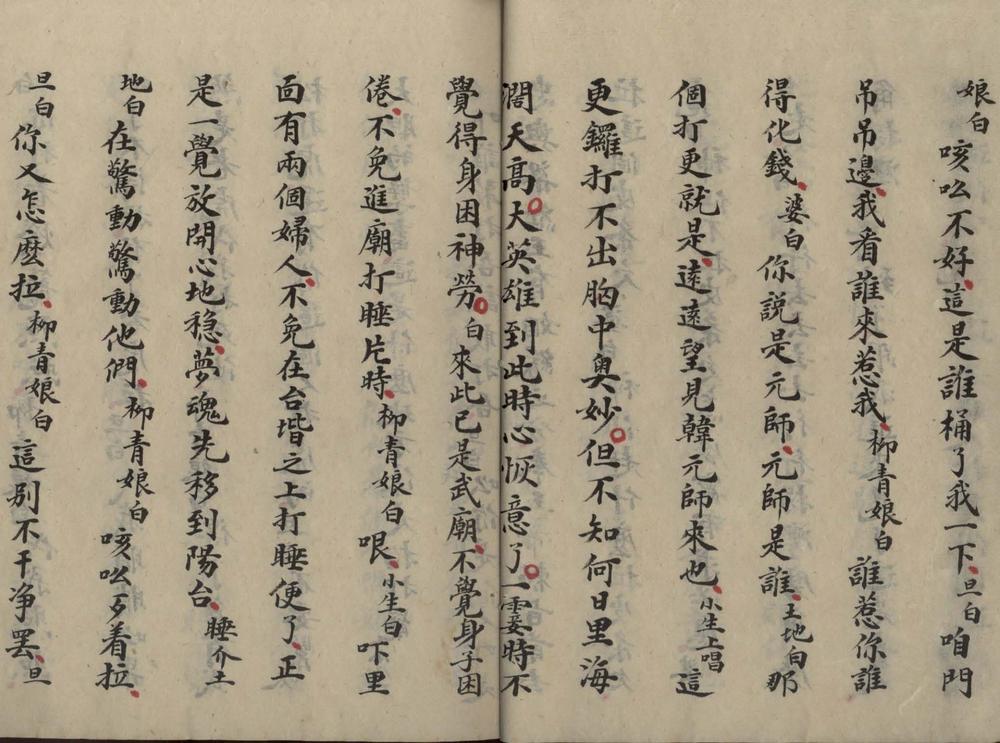 娘白 咳吆不好這是誰桶了我一下旦白咱門
吊吊邊我看誰來惹我柳青娘白 誰惹你誰
得化錢婆白 你説是元師元師是誰土地白那
個打更就是遠遠望見韓元師來也小生上唱 這
更鑼打不出胸中奧妙但不知何日里海
濶天高大英雄到此時心恢意了一霎時不
覺得身困神勞白 來此已是武廟不覺身子困
倦不免進廟打睡片時柳青娘白 哏小生白 吓里
面有兩個婦人不免在台堦之上打睡便了正
是一覺放開心地穏夢魂先移到陽台睡介土
地白 在驚動驚動他們柳青娘白 咳吆歹着拉
旦白 你又怎麼拉柳青娘白 這別不干净罷旦